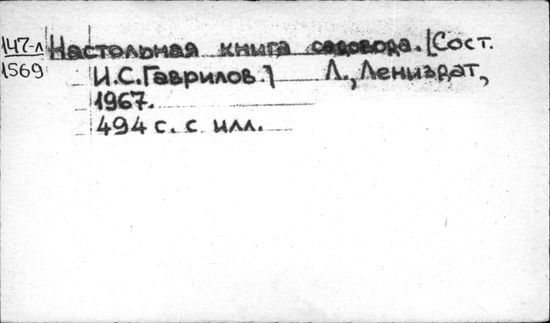 147-л Настольная книга садовода. [Сост.
1569 И.С.Гаврилов.] Л., Лениздат,
1967.
494 с. с илл.